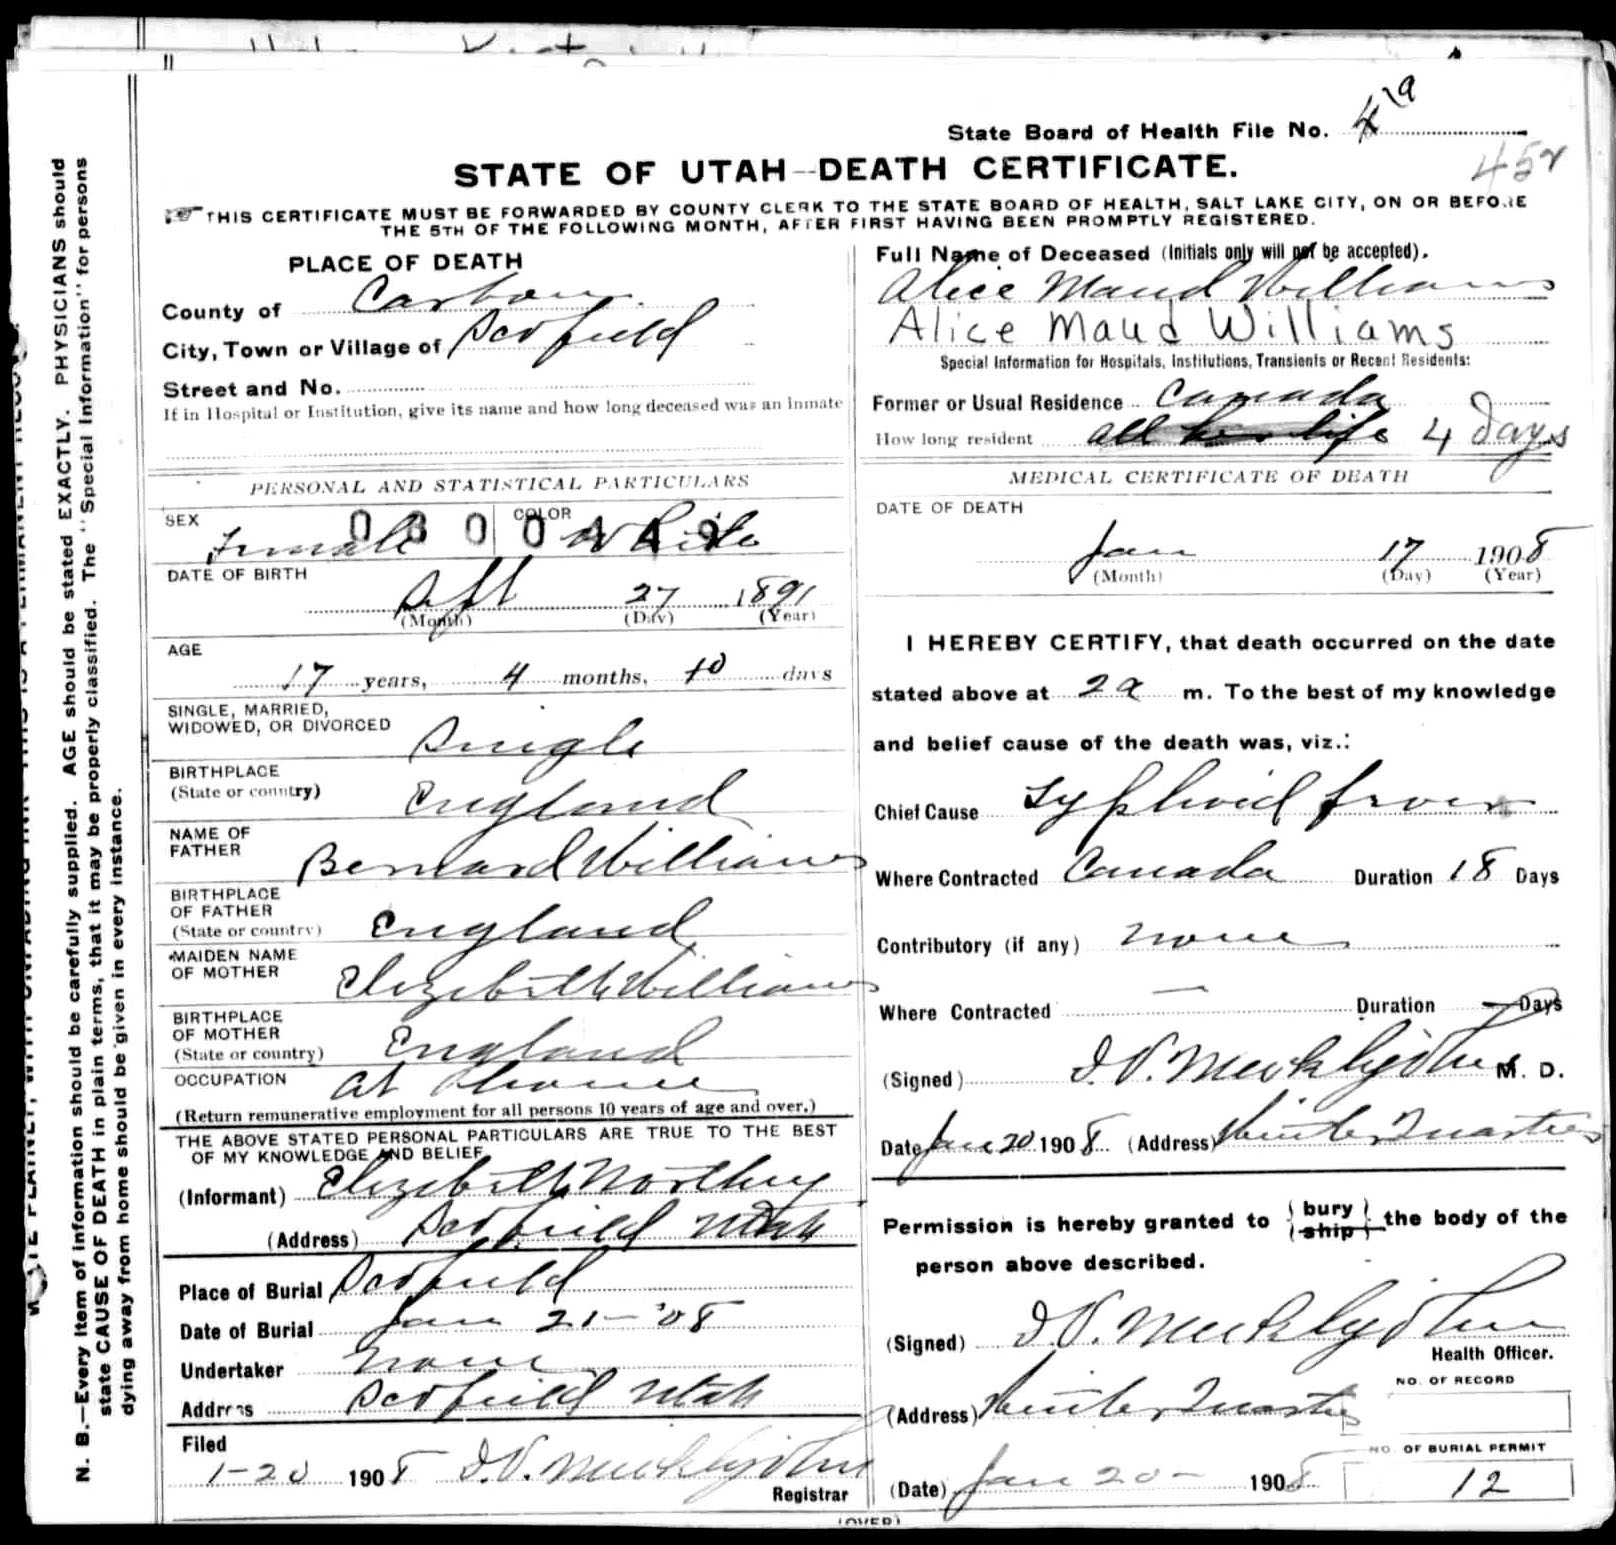 State Board of Health File No. 4 19
452
STATE OF UTAH--DEATH CERTIFICATE.
THIS CERTIFICATE MUST BE FORWARDED BY COUNTY CLERK TO THE STATE BOARD OF HEALTH, SALT LAKE CITY, ON OR BEFORE
THE 5TH OF THE FOLLOWING MONTH, AFTER FIRST HAVING BEEN PROMPTLY REGISTERED.
PLACE OF DEATH
County of Carbon
City, Town or Village of Scofield
Street and No.
If in Hospital or Institution, give its name and how long deceased was an inmate
Full Name of Deceased (Initials only will not be accepted).
Alice Maud Williams
Alice Maud Williams
Special Information for Hospitals, Institutions, Transients or Recent Residents:
Former or Usual Residence Canada
How long resident all her life 4 days
PERSONAL AND STATISTICAL PARTICULARS
SEX Female COLOR White
0800449
DATE OF BIRTH
Sept 27 1891
(Month) (Day) (Year)
AGE
17 years, 4 months, 10 days
SINGLE, MARRIED,
WIDOWED, OR DIVORCED Single
BIRTHPLACE
(State or country) England
NAME OF
FATHER Bernard Williams
BIRTHPLACE
OF FATHER
(State or country) England
MAIDEN NAME
OF MOTHER Elizebeth Williams
BIRTHPLACE
OF MOTHER
(State or country) England
OCCUPATION at Home
(Return remunerative employment for all persons 10 years of age and over.)
THE ABOVE STATED PERSONAL PARTICULARS ARE TRUE TO THE BEST
OF MY KNOWLEDGE AND BELIEF
(Informant) Elizebeth Northey
(Address) Scofield Utah
Place of Burial Scofield
Date of Burial Jan 21-'08
Undertaker None
Address Scofield Utah
Filed
1-20 1908
Registrar
MEDICAL CERTIFICATE OF DEATH
DATE OF DEATH
Jan 17 1908
(Month) (Day) (Year)
I HEREBY CERTIFY, that death occurred on the date
stated above at 2 a m. To the best of my knowledge
and belief cause of the death was, viz.:
Chief Cause Typhoid fever
Where Contracted Canada Duration 18 Days
Contributory (if any) None
Where Contracted — Duration — Days
(Signed) M. D.
Date Jan 20 1908 (Address) Winter Quarters
Permission is hereby granted to { bury / ship } the body of the
person above described.
(Signed)
Health Officer.
(Address) Winter Quarters
NO. OF RECORD
(Date) Jan 20- 1908
NO. OF BURIAL PERMIT
12
(OVER)
N. B.—Every item of information should be carefully supplied. AGE should be stated EXACTLY. PHYSICIANS should
state CAUSE OF DEATH in plain terms, that it may be properly classified. The "Special Information" for persons
dying away from home should be given in every instance.